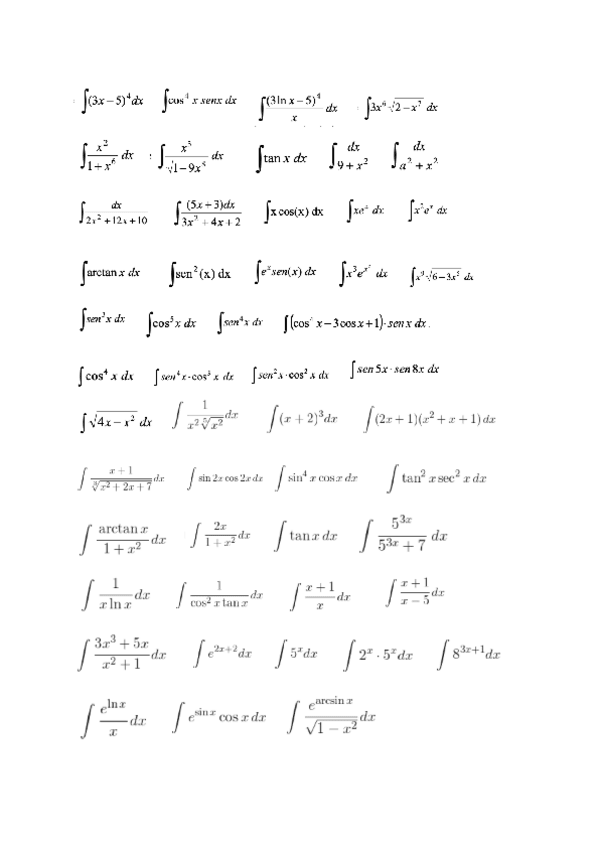 ∫(3x − 5)⁴dx ∫cos⁴ x senx dx ∫(3ln x − 5)⁴/x dx ∫3x⁶ √(2 − x⁷) dx
∫x²/(1 + x⁶) dx ∫ dx ∫tan x dx ∫dx/(9 + x²) ∫dx/(a² + x²)
∫dx/(2x² + 12x + 10) ∫(5x + 3)dx/(3x² + 4x + 2) ∫x cos(x) dx ∫xeˣ dx ∫x²eˣ dx
∫arctan x dx ∫sen²(x) dx ∫eˣsen(x) dx ∫ dx ∫ dx
∫ dx ∫cos⁵x dx ∫sen⁴x dx ∫( x − 3cos x + 1)·sen x dx
∫cos⁴ x dx ∫ dx ∫sen²x·cos² x dx ∫sen 5x · sen 8x dx
∫√(4x − x²) dx ∫ dx ∫(x + 2)³dx ∫(2x + 1)(x² + x + 1) dx
∫ dx ∫sin 2x cos 2x dx ∫sin⁴ x cos x dx ∫tan² x sec² x dx
∫arctan x/(1 + x²) dx ∫2x/(1 + x²) dx ∫tan x dx ∫5³ˣ/(5³ˣ + 7) dx
∫1/(x ln x) dx ∫1/(cos² x tan x) dx ∫(x + 1)/x dx ∫(x + 1)/(x − 5) dx
∫(3x³ + 5x)/(x² + 1) dx ∫e²ˣ⁺²dx ∫5ˣdx ∫2ˣ · 5ˣdx ∫8³ˣ⁺¹dx
∫e^(ln x)/x dx ∫e^(sin x) cos x dx ∫e^(arcsin x)/√(1 − x²) dx